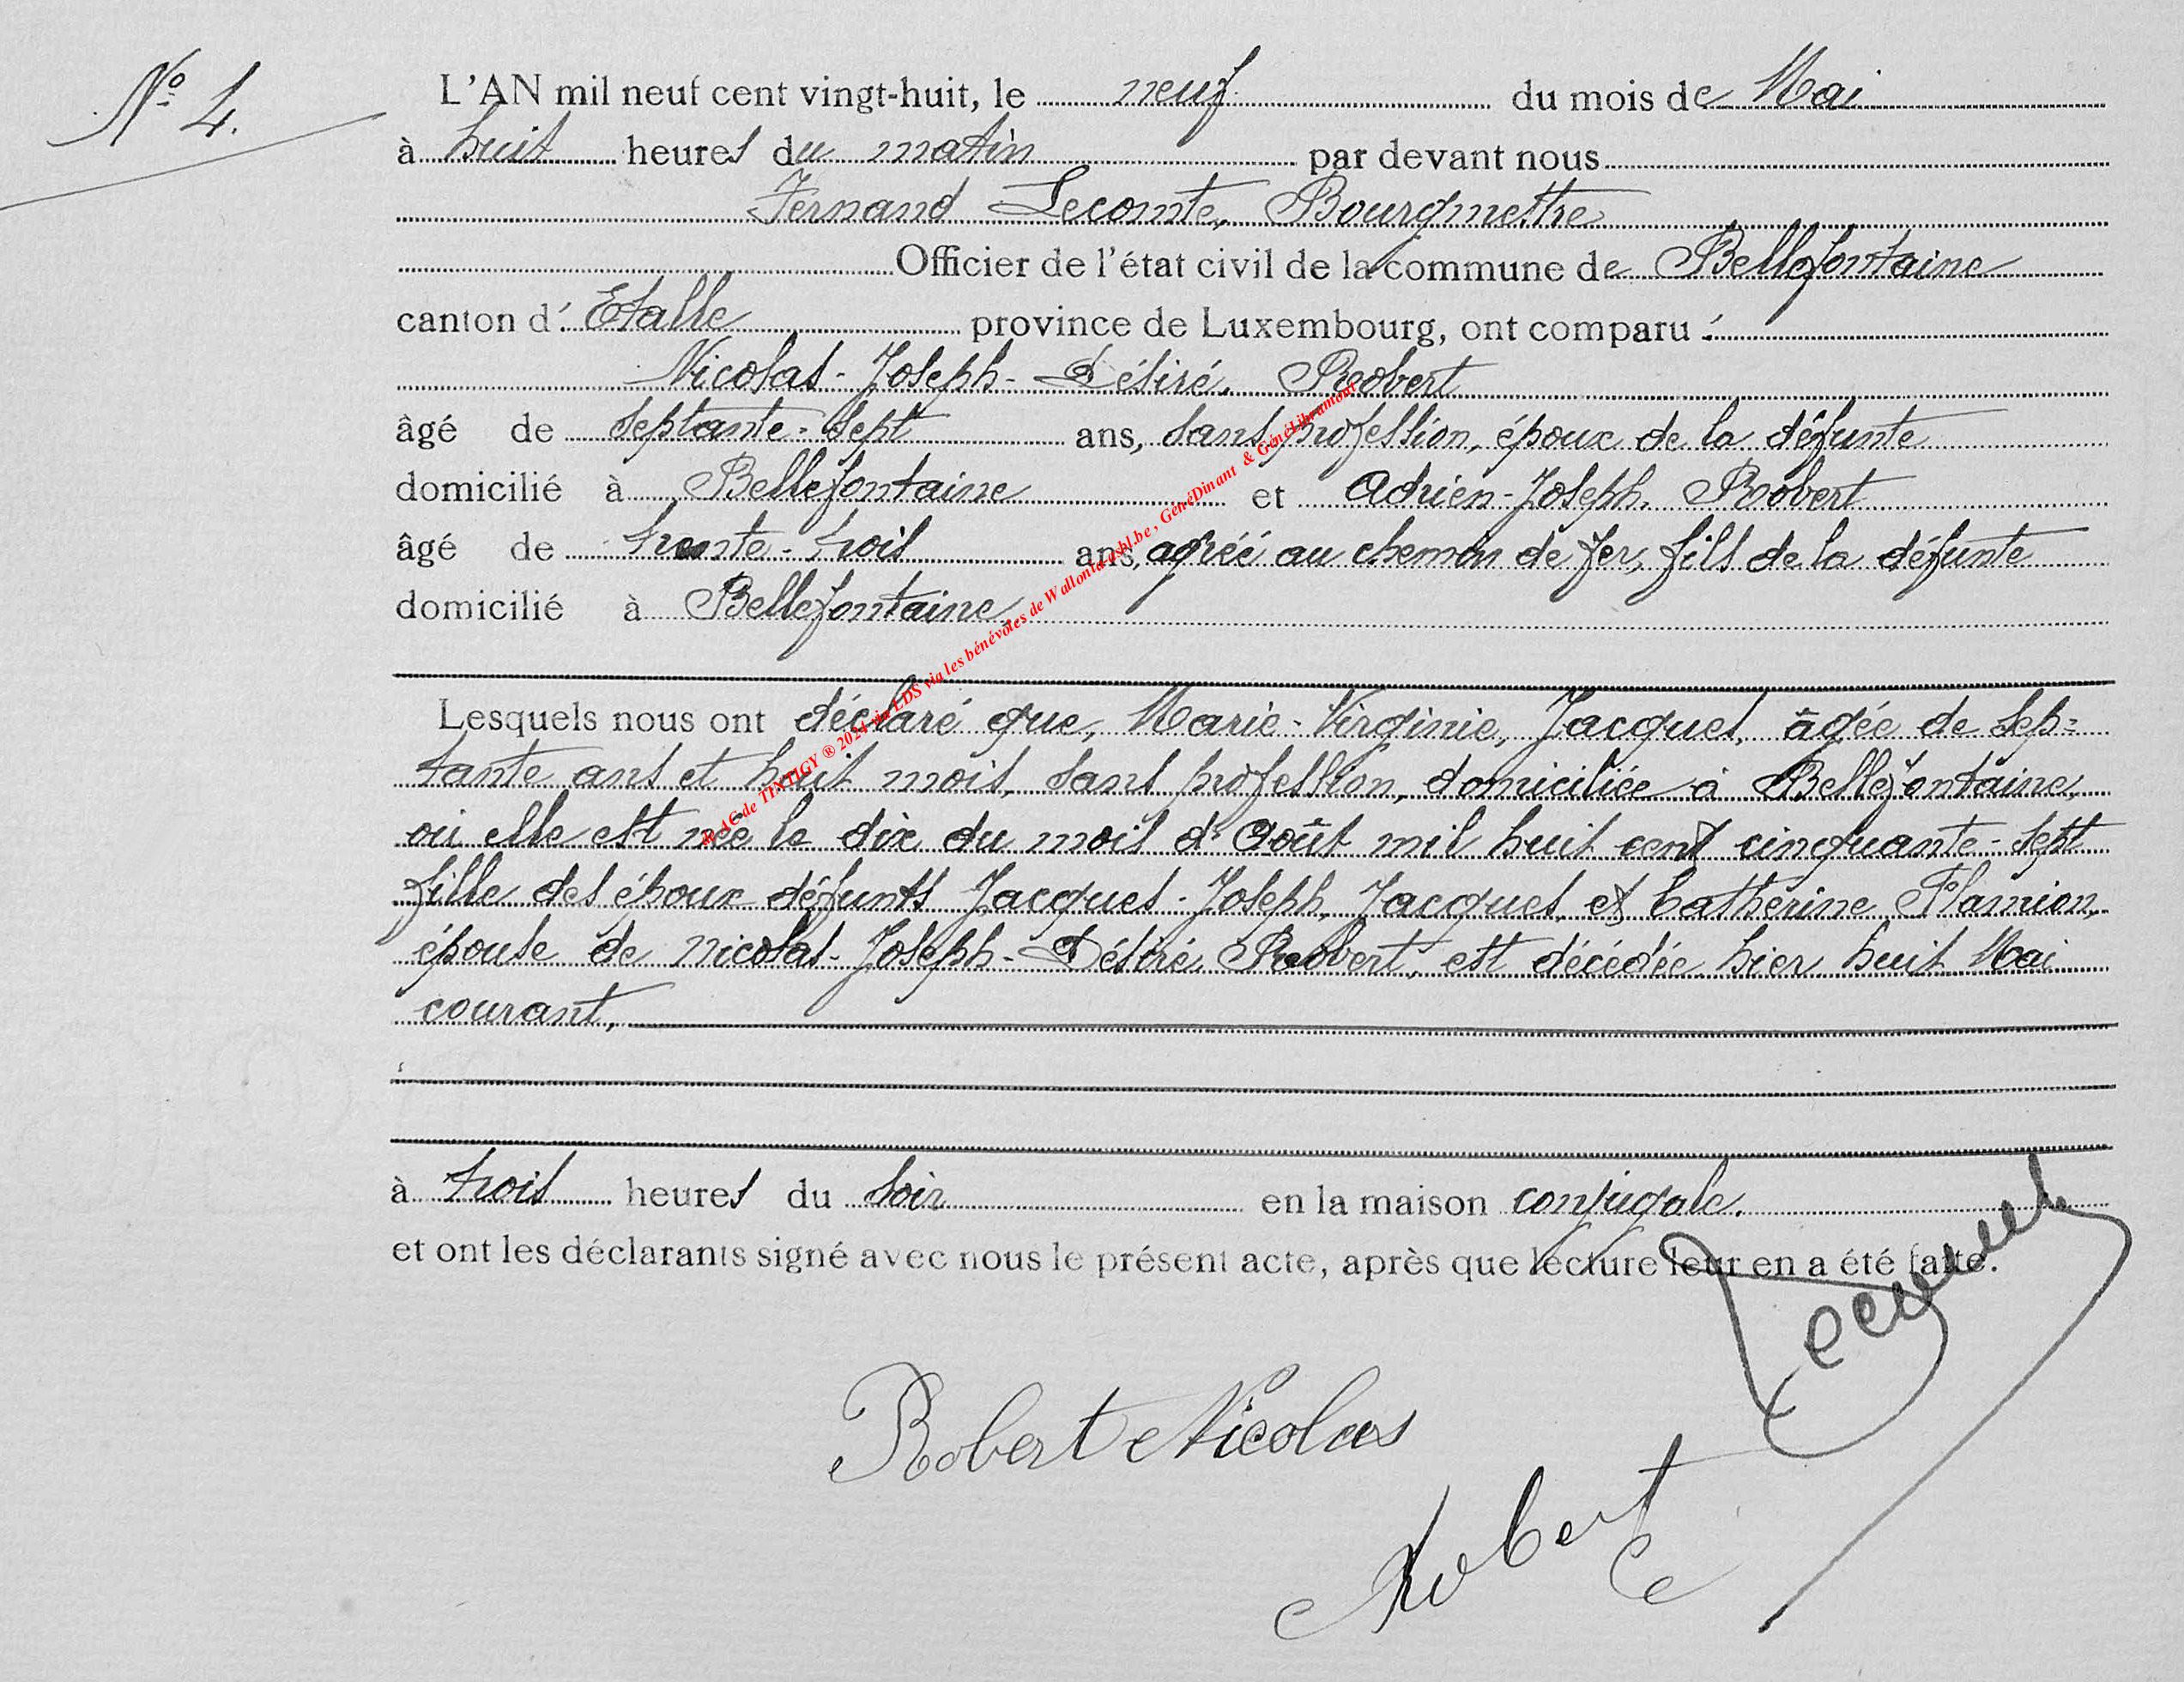 N° 4.
L'AN mil neuf cent vingt-huit, le neuf du mois de Mai
à huit heures du matin par devant nous
Fernand Lecomte, Bourgmettre
Officier de l'état civil de la commune de Bellefontaine
canton d'Etalle province de Luxembourg, ont comparu :
Nicolas-Joseph-Désiré, Robert
âgé de septante-sept ans, sans profession, époux de la défunte
domicilié à Bellefontaine et Adrien-Joseph, Robert
âgé de trente-trois ans, agréé au chemin de fer, fils de la défunte
domicilié à Bellefontaine,
Lesquels nous ont déclaré que, Marie-Virginie, Jacques, âgée de sep=
tante ans et huit mois, sans profession, domiciliée à Bellefontaine,
où elle est née le dix du mois d'Août mil huit cent cinquante-sept
fille des époux défunts Jacques-Joseph, Jacques, et Catherine Flamion,
épouse de Nicolas-Joseph-Désiré, Robert, est décédée hier huit Mai
courant,
à trois heures du soir en la maison conjugale.
et ont les déclarants signé avec nous le présent acte, après que lecture leur en a été faite.
Robert Nicolas
Robert
de TINTIGY ® 2024 via LDS via les bénévoles de Wallonia asbl.be , GénéDinant & GénéLibramont